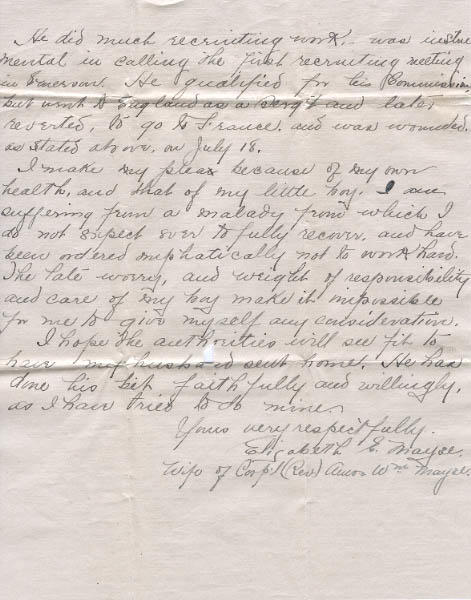 He did much recruiting work, was instru
mental in calling the first recruiting meeting
in Emerson. He qualified for his Commission,
but went to England as a Serg't and later
reverted, to go to France, and was wounded,
as stated above, on July 18.
I make my pleas because of my own
health, and that of my little boy. I am
suffering from a malady from which I
do not expect ever to fully recover, and have
been ordered emphatically not to work hard.
The late worry, and weight of responsibility
and care of my boy make it impossible
for me to give myself any consideration.
I hope the authorities will see fit to
have my husband sent home. He has
done his bit faithfully and willingly,
as I have tried to do mine.
Yours very respectfully.
Elizabeth E. Mayse.
Wife of Corp'l (Rev) Amos Wm Mayse.